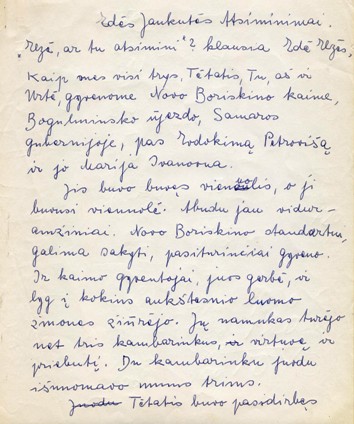 Edės Jankutės Atsiminimai.
„Rezė, ar tu atsimini"? klausia Edė Rezės,
Kaip mes visi trys, Tėtatis, Tu, aš ir
Urtė, gyvenome Novo Boriskino kaime,
Bogulminsko ujezdo, Samaros
gubernijoje, pas Evdokimą Petrovišą
ir jo Marija Ivanovna.
Jis buvo buvęs vienuolis, o ji
buvusi viennolė. Abudu jau vidur-
amžiniai. Novo Boriskino standartu,
galima sakyti, pasiturinčiai gyveno.
Ir kaimo gyventojai, juos gerbė, ir
lyg į kokius aukštesnio luomo
žmones žiūrėjo. Jų namukas turėjo
net tris kambarinkus, ir virtuvę, ir
priebutį. Du kambarinku juodu
išnuomavo mums trims.
Juodu Tėtatis buvo pasidirbęs